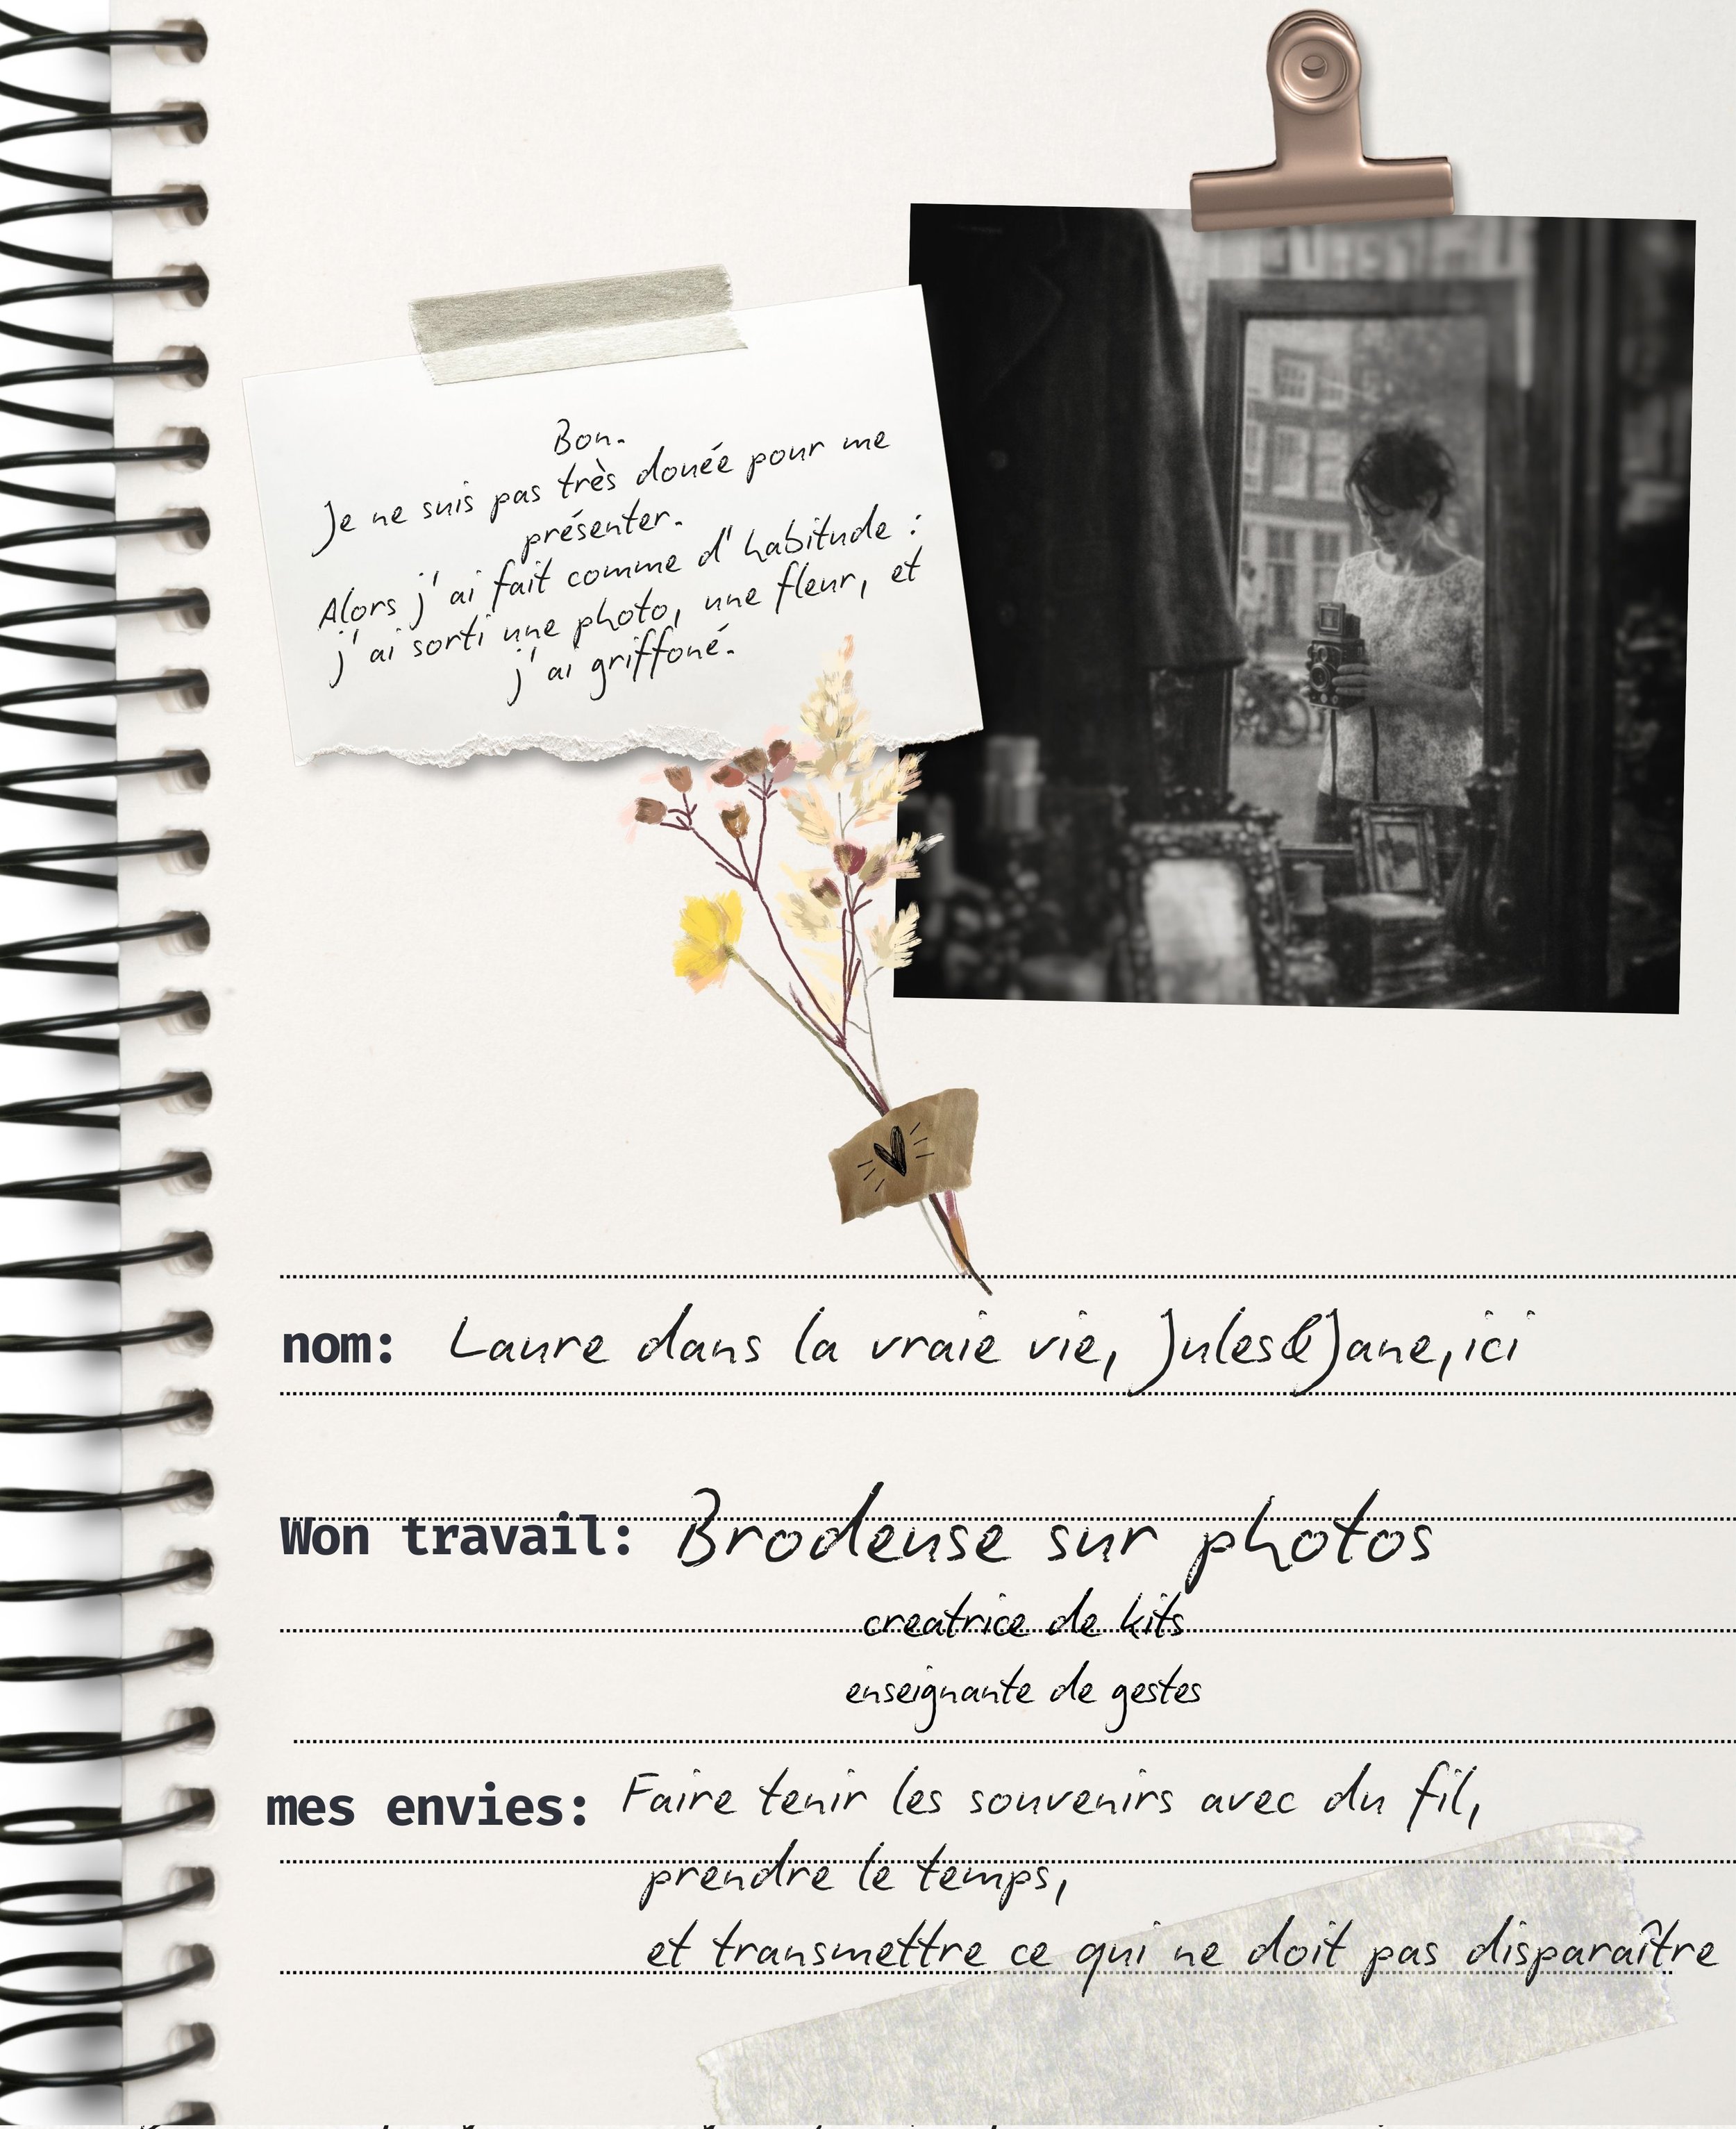 Bon.
Je ne suis pas très douée pour me
présenter.
Alors j'ai fait comme d'habitude :
j'ai sorti une photo, une fleur, et
j'ai griffoné.
nom: Laure dans la vraie vie, Jules&Jane, ici
Won travail: Brodeuse sur photos
creatrice de kits
enseignante de gestes
mes envies: Faire tenir les souvenirs avec du fil,
prendre le temps,
et transmettre ce qui ne doit pas disparaître